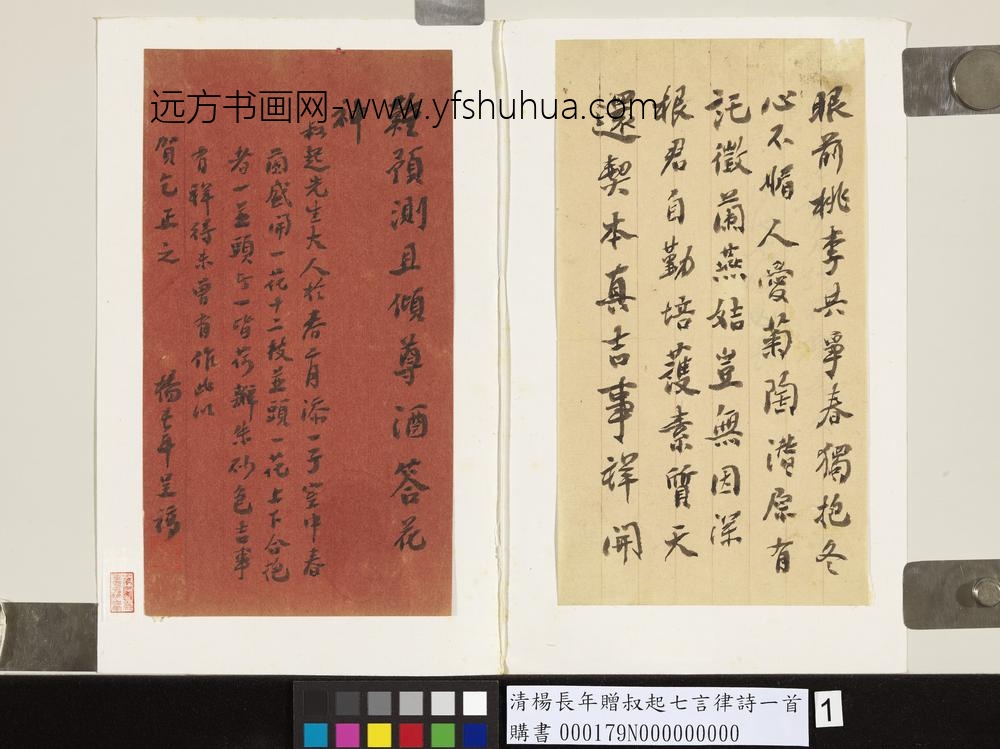 眼前桃李共爭春獨抱冬
心不媚人愛菊陶潛原有
託徵蘭燕姞豈無因深
根君自勤培護素質天
還契本真吉事祥開
難預測且傾尊酒答花
神
叔起先生大人於春二月添一子室中春
蘭盛開一花十二枝並頭一花上下合抱
者一並頭者一皆荷瓣朱砂色吉事
有祥得未曾有作此以
賀乞正之
楊長年呈稿
远方书画网-www.yfshuhua.com
清楊長年贈叔起七言律詩一首
購書 000179N000000000
1